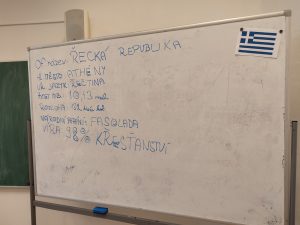 Of. název: ŘECKÁ REPUBLIKA
HL. MĚSTO: ATHÉNY
ÚŘ. JAZYK: ŘEČTINA
POČET OB.: 10,13 mil.
ROZLOHA: 131
NÁRODNÍ FASOLADA
VÍRA: 98% KŘESŤANSTVÍ